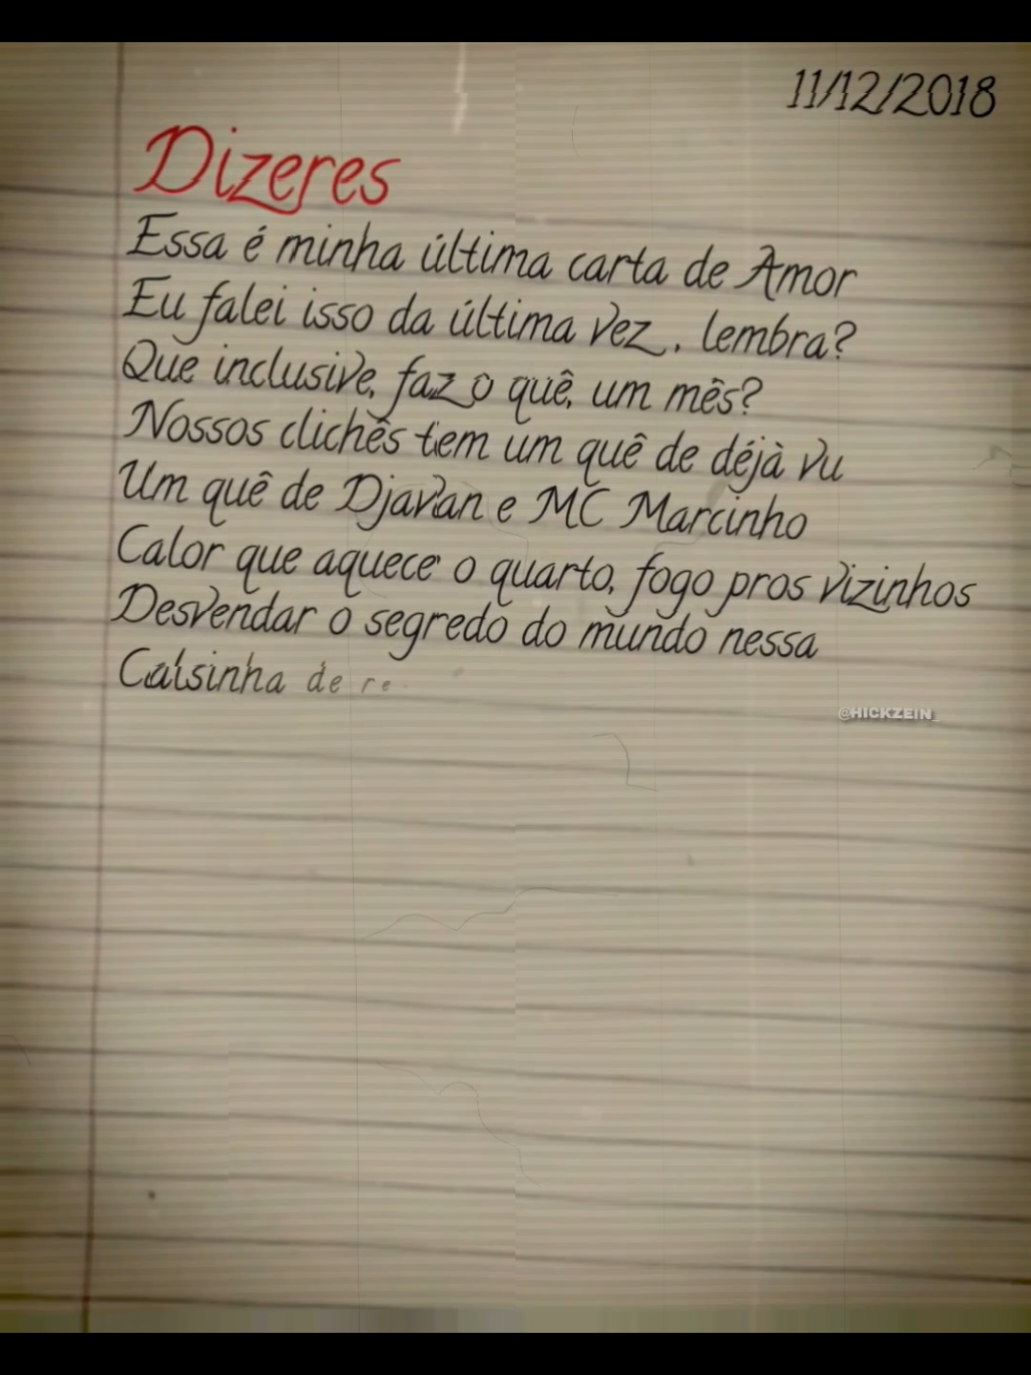 11/12/2018
Dizeres
Essa é minha última carta de Amor
Eu falei isso da última vez, lembra?
Que inclusive, faz o quê, um mês?
Nossos clichês tem um quê de déjà vu
Um quê de Djavan e MC Marcinho
Calor que aquece o quarto, fogo pros vizinhos
Desvendar o segredo do mundo nessa
Calsinha de re
@HICKZEIN_